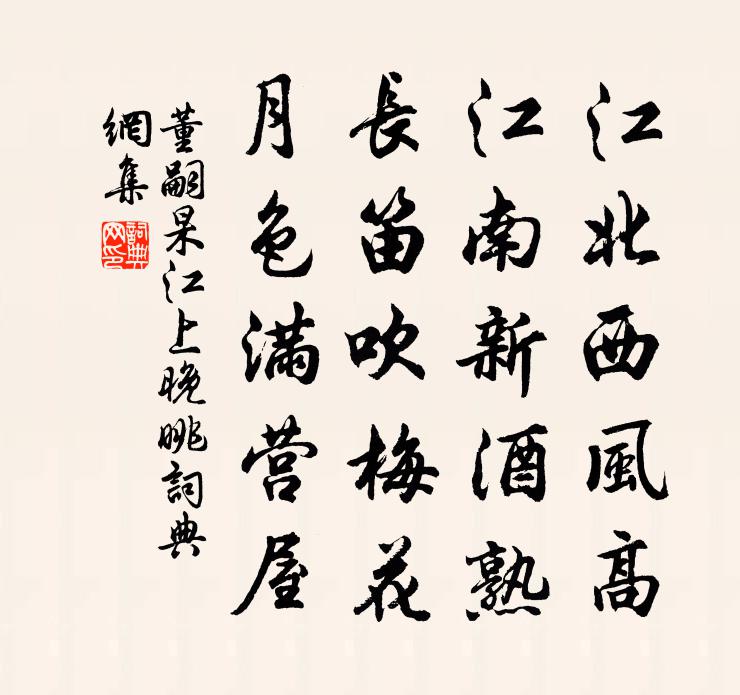 江北西風高
江南新酒熟
長笛吹梅花
月色滿營屋
董嗣杲江上晚眺詞典
網集
詞典网印